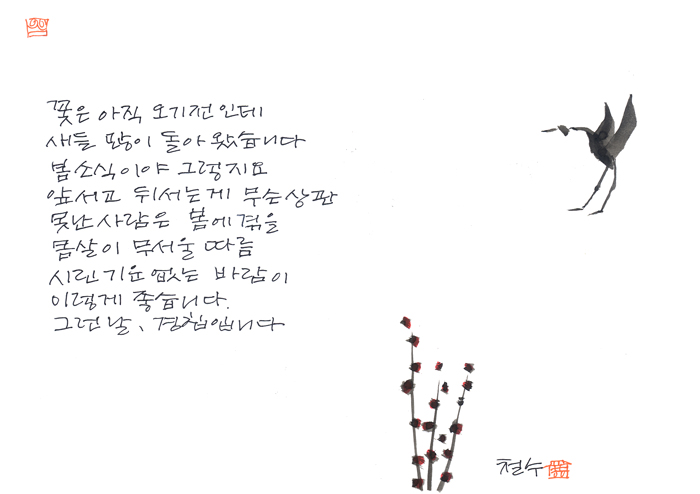 꽃은 아직 오기전인데
새들 많이 돌아왔습니다
봄소식이야 그렇지요
앞서고 뒤서는게 무슨상관
못난사람은 봄에겪을
몸살이 무서울 따름
시린기운없는 바람이
이렇게 좋습니다.
그런날, 경칩입니다
철수